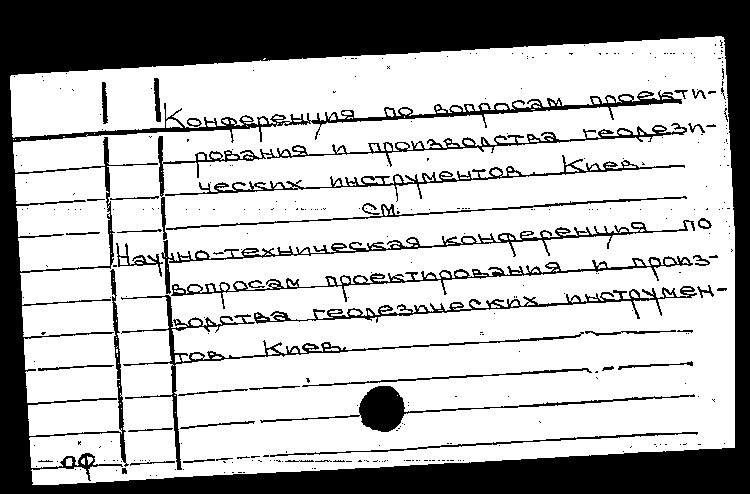 Конференция по вопросам проекти-
рования и производства геодези-
ческих инструментов. Киев.
см.
Научно-техническая конференция по
вопросам проектирования и произ-
водства геодезических инструмен-
тов. Киев.
оф